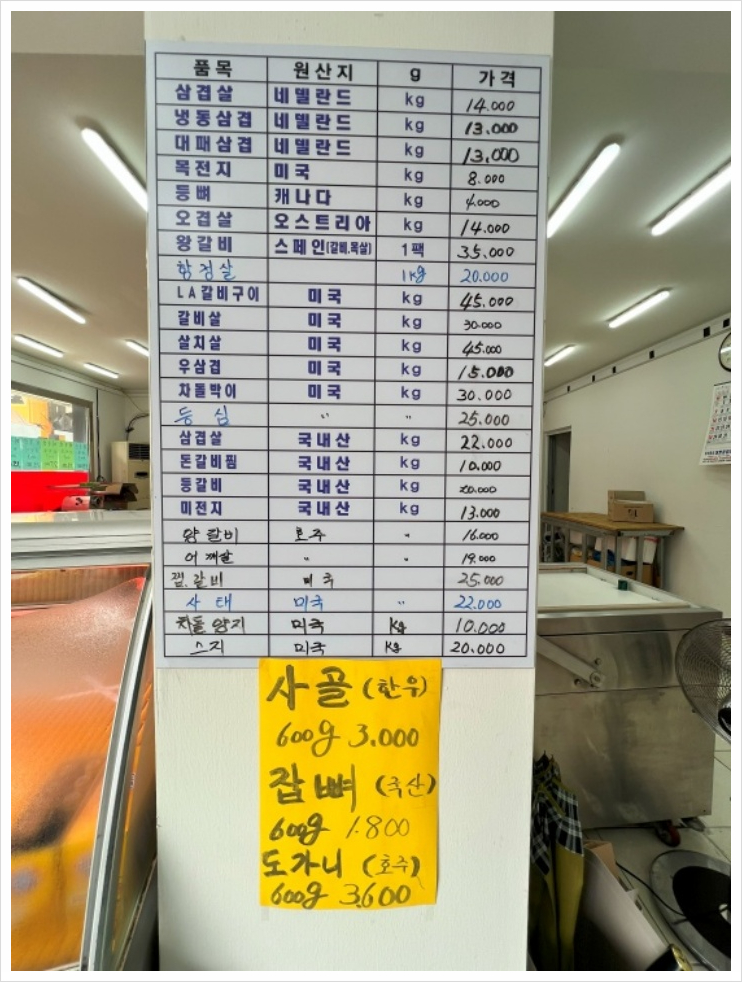 품목 원산지 g 가격
삼겹살 네델란드 kg 14.000
냉동삼겹 네델란드 kg 13.000
대패삼겹 네델란드 kg 13.000
목전지 미국 kg 8.000
등뼈 캐나다 kg 4.000
오겹살 오스트리아 kg 14.000
왕갈비 스페인(갈비.목살) 1팩 35.000
항정살 1kg 20.000
LA갈비구이 미국 kg 45.000
갈비살 미국 kg 30.000
살치살 미국 kg 45.000
우삼겹 미국 kg 15.000
차돌박이 미국 kg 30.000
등심 " " 25.000
삼겹살 국내산 kg 22.000
돈갈비찜 국내산 kg 10.000
등갈비 국내산 kg 20.000
미전지 국내산 kg 13.000
양갈비 호주 " 16.000
어깨살 " " 19.000
찜.갈비 미국 25.000
사태 미국 " 22.000
차돌양지 미국 Kg 10.000
스지 미국 Kg 20.000
사골 (한우)
600g 3.000
잡뼈 (국산)
600g 1.800
도가니 (호주)
600g 3.600